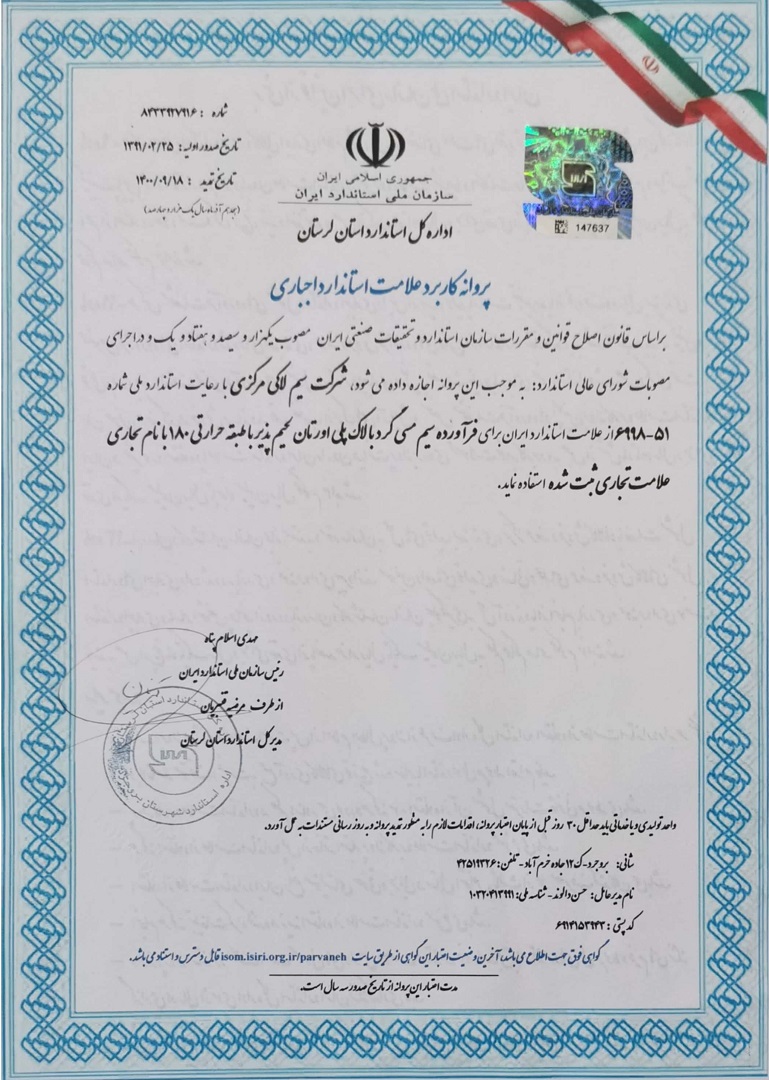 شماره : ۸۳۳۳۹۲۷۹۱۶
تاریخ صدور اولیه: ۱۳۹۱/۰۲/۲۵
تاریخ تمدید : ۱۴۰۰/۰۹/۱۸
(هجدهم آذر ماه سال یک هزار و چهارصد)
جمهوری اسلامی ایران
سازمان ملی استاندارد ایران
147637
اداره کل استاندارد استان لرستان
پروانه کاربرد علامت استاندارد اجباری
براساس قانون اصلاح قوانین و مقررات سازمان استاندارد و تحقیقات صنعتی ایران مصوب یکهزار و سیصد و هفتاد و یک و در اجرای
مصوبات شورای عالی استاندارد: به موجب این پروانه اجازه داده می شود، شرکت سیم لاکی مرکزی با رعایت استاندارد ملی شماره
۶۹۹۸-۵۱ از علامت استاندارد ایران برای فرآورده سیم مسی گرد با لاک پلی اورتان لحیم پذیر با طبقه حرارتی ۱۸۰ با نام تجاری
علامت تجاری ثبت شده استفاده نماید.
مهدی اسلام پناه
رئیس سازمان ملی استاندارد ایران
از طرف مرضیه قنبریان
مدیر کل استاندارد استان لرستان
واحد تولیدی و یا خدماتی باید حداقل ۳۰ روز قبل از پایان اعتبار پروانه، اقدامات لازم را به منظور تمدید پروانه و به روز رسانی مستندات به عمل آورد.
نشانی: بروجرد-ک ۱۲ جاده خرم آباد - تلفن: ۴۲۵۱۹۳۲۶
نام مدیر عامل: حسن دالوند - شناسه ملی: ۱۰۳۲۰۴۱۳۹۹۱
کد پستی : ۶۹۱۴۱۵۳۹۴۳
گواهی فوق جهت اطلاع می باشد، آخرین وضعیت اعتبار این گواهی از طریق سایت isom.isiri.org.ir/parvaneh قابل دسترس و استناد می باشد.
مدت اعتبار این پروانه از تاریخ صدور سه سال است.